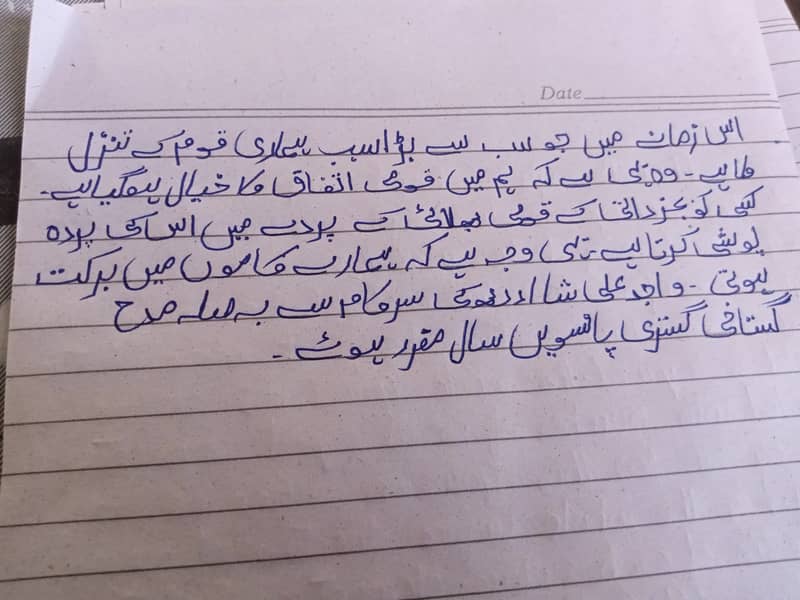 Date
اس زمانے میں جو سب سے بڑا سبب ہماری قوم کے تنزل
کا ہے۔ وہ یہی ہے کہ ہم میں قومی اتفاق کا خیال ہوگیا ہے۔
کسی کو بجز ذاتی کے قومی بھلائی کے پردے میں اس کی پردہ
پوشی کرتا ہے۔ یہی وجہ ہے کہ ہمارے کاموں میں برکت
ہوتی۔ واجد علی شاہ اودھ کی سرکام سے بہ صلہ مدح
گستری پانسویں سال مقرر ہوئے۔